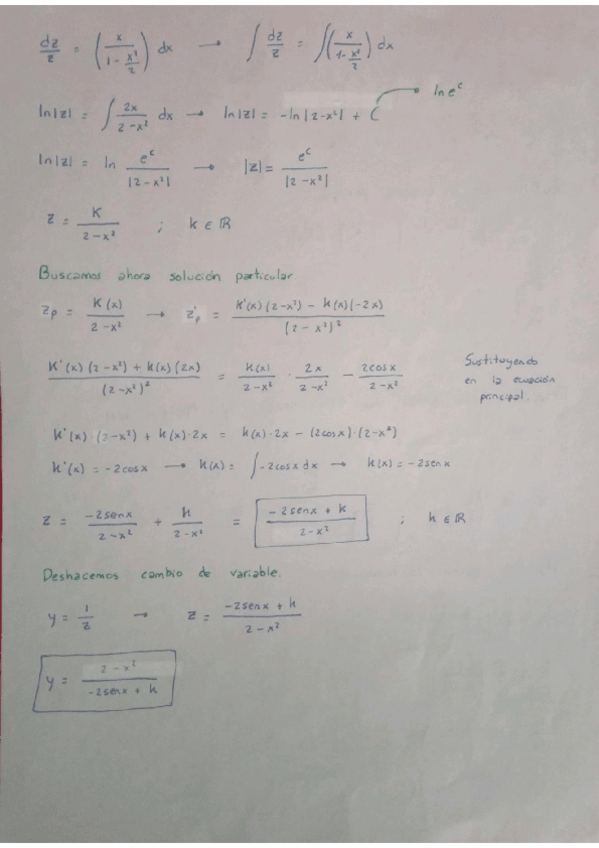 dz/z = (x/(1 - x²/2)) dx → ∫ dz/z = ∫(x/(1 - x²/2)) dx
ln e^c
ln|z| = ∫ 2x/(2-x²) dx → ln|z| = -ln|2-x²| + C
ln|z| = ln e^c/|2-x²| → |z| = e^c/|2-x²|
z = K/(2-x²) ; k ∈ ℝ
Buscamos ahora solución particular
zp = K(x)/(2-x²) → z'p = (K'(x)(2-x²) - k(x)(-2x))/(2-x²)²
(K'(x)(2-x²) + k(x)(2x))/(2-x²)² = k(x)/(2-x²) · 2x/(2-x²) - 2cosx/(2-x²)
Sustituyendo
en la ecuación
principal.
K'(x)·(2-x²) + k(x)·2x = k(x)·2x - (2cosx)·(2-x²)
k'(x) = -2cosx → k(x) = ∫-2cosx dx → k(x) = -2senx
z = -2senx/(2-x²) + k/(2-x²) = (-2senx + k)/(2-x²) ; k ∈ ℝ
Deshacemos cambio de variable.
y = 1/z → z = (-2senx + k)/(2-x²)
y = (2-x²)/(-2senx + k)